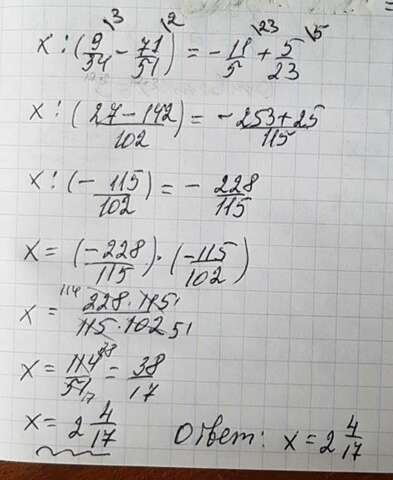 x : (9/34 \3 - 71/51 \2) = - 11/5 \23 + 5/23 \5
x : (27 - 142 / 102) = - 253 + 25 / 115
x : (- 115/102) = - 228/115
x = (-228/115) · (-115/102)
x = 114 228 · 115 1 / 115 · 102 51
x = 114 38 / 51 17 = 38/17
x = 2 4/17 Ответ: x = 2 4/17